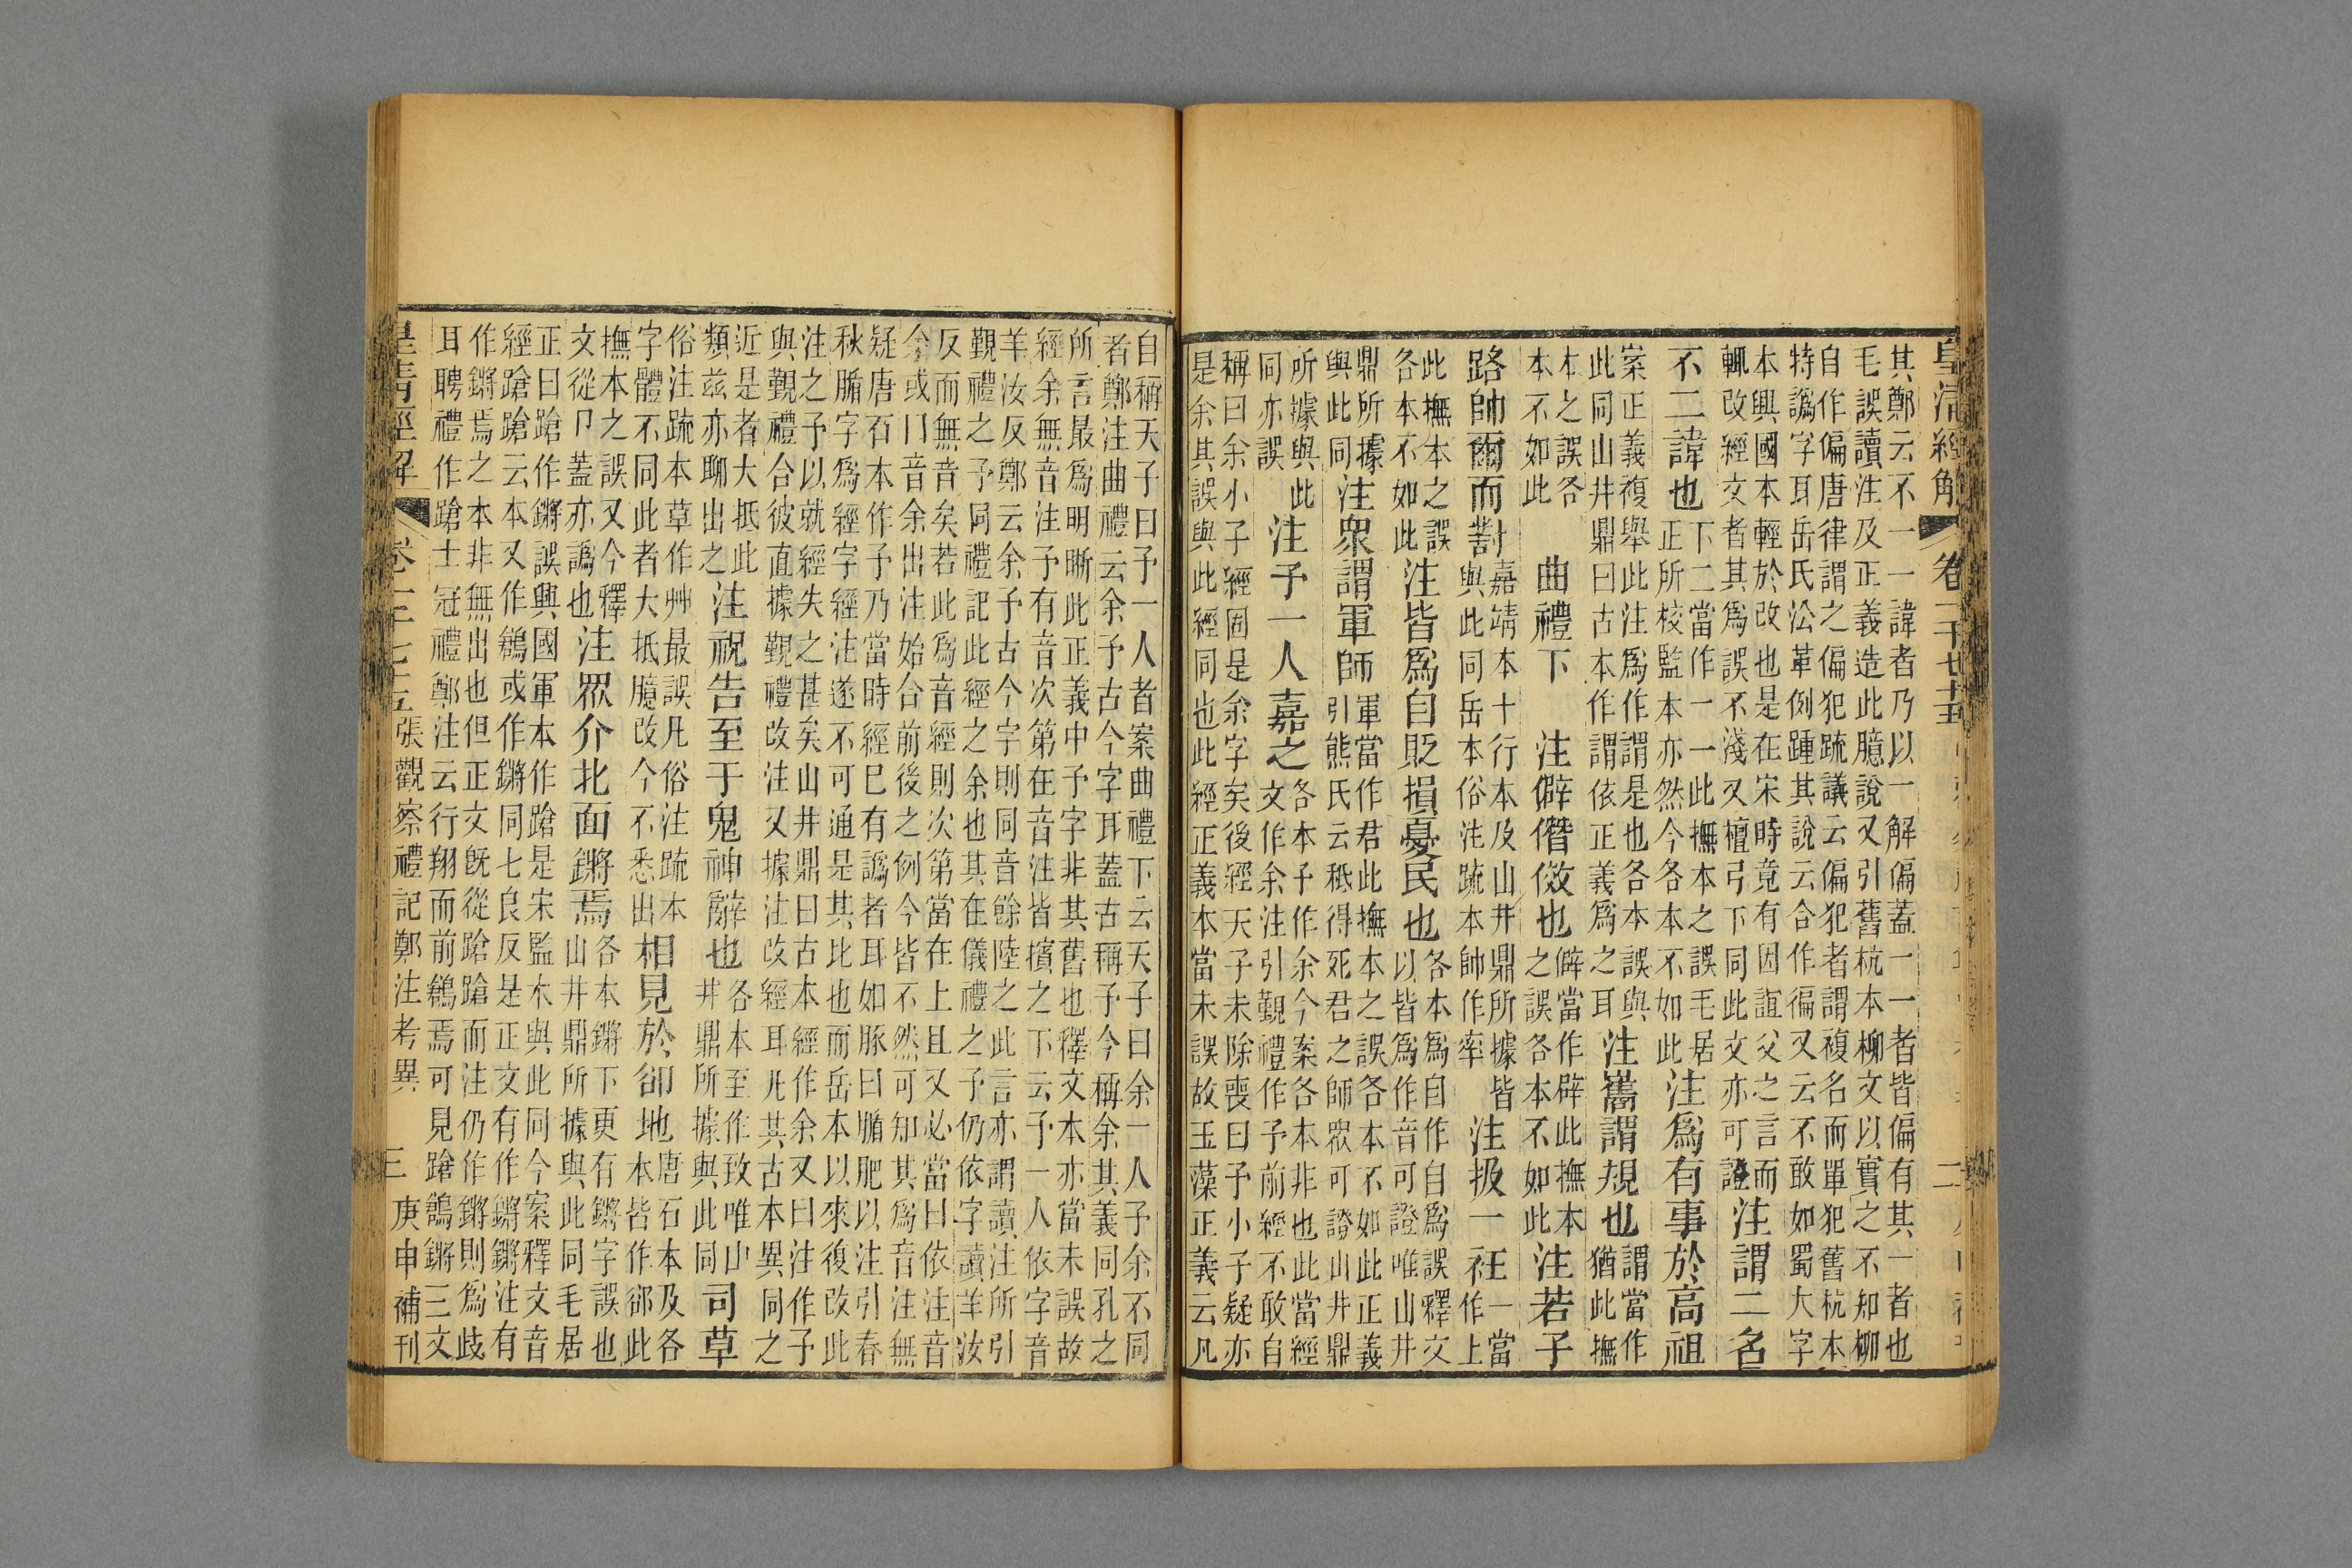 皇清經解 卷一千七十五 二
其鄭云不一一諱者乃以一解偏蓋一一者皆偏有其一者也
毛誤讀注及正義造此臆說又引舊杭本柳文以實之不知柳
自作偏唐律謂之偏犯疏議云偏犯者謂複名而單犯舊杭本
特譌字耳岳氏㳂革例踵其說云合作徧又云不敢如蜀大字
本興國本輕於改也是在宋時竟有因誼父之言而
輒改經文者其爲誤不淺又檀弓下同此文亦可證
注謂二名
不二諱也
下二當作一一此撫本之誤毛居
正所校監本亦然今各本不如此
注爲有事於高祖
案正義複舉此注爲作謂是也各本誤與
此同山井鼎曰古本作謂依正義爲之耳
注嶲謂規也
謂當作
猶此撫
本之誤各
本不如此
曲禮下
注僻僭傚也
僻當作辟此撫本
之誤各本不如此
注若子
路帥爾而對
嘉靖本十行本及山井鼎所據皆
與此同岳本俗注疏本帥作率
注扱一社
一當
作上
此撫本之誤
各本不如此
注皆爲自貶損憂民也
各本爲自作自爲誤釋文
以皆爲作音可證唯山井
鼎所據
與此同
注衆謂軍師
軍當作君此撫本之誤各本不如此正義
引熊氏云秪得死君之師衆可證山井鼎
所據與此
同亦誤
注予一人嘉之
各本予作余今案各本非也此當經
文作余注引覲禮作予前經不敢自
稱曰余小子經固是余字矣後經天子未除喪曰予小子疑亦
是余其誤與此經同也此經正義本當未誤故玉藻正義云凡
自稱天子曰予一人者案曲禮下云天子曰余一人予余不同
者鄭注曲禮云余予古今字耳蓋古稱予今稱余其義同孔之
所言最爲明晰此正義中予字非其舊也釋文本亦當未誤故
經余無音注予有音次第在音注皆擯之下云予一人依字音
羊汝反鄭云余予古今字則同音餘陸之此言亦謂讀注所引
覲禮之予同禮記此經之余也其在儀禮之予仍依字讀羊汝
反而無音矣若此爲音經則次第當在上且又必當曰依注音
余或卩音余出注始合前後之例今皆不然可知其爲音注無
疑唐石本作予乃當時經巳有譌者耳如豚曰腯肥以注引春
秋腯字爲經字經注遂不可通是其比也而岳本以來復改此
注之予以就經失之甚矣山井鼎曰古本經作余又曰注作予
與覲禮合彼直據覲禮改注又據注改經耳凡其古本異同之
近是者大抵此
類茲亦聊出之
注祝告至于鬼神辭也
各本至作致唯山
井鼎所據與此同
司草
俗注疏本草作艸最誤凡俗注疏本
字體不同此者大抵臆改今不悉出
相見於卻地
唐石本及各
本皆作郤此
撫本之誤又今釋
文從卩蓋亦譌也
注眾介北面鏘焉
各本鏘下更有鏘字誤也
山井鼎所據與此同毛居
正曰蹌作鏘誤興國軍本作蹌是宋監本與此同今案釋文音
經蹌蹌云本又作鶬或作鏘同七良反是正文有作鏘鏘注有
作鏘焉之本非無出也但正文旣從蹌蹌而注仍作鏘則爲歧
耳聘禮作蹌士冠禮鄭注云行翔而前鶬焉可見蹌鶬鏘三文
皇清經解 卷一千七十五 張觀察禮記鄭注考異 三 庚申補刊